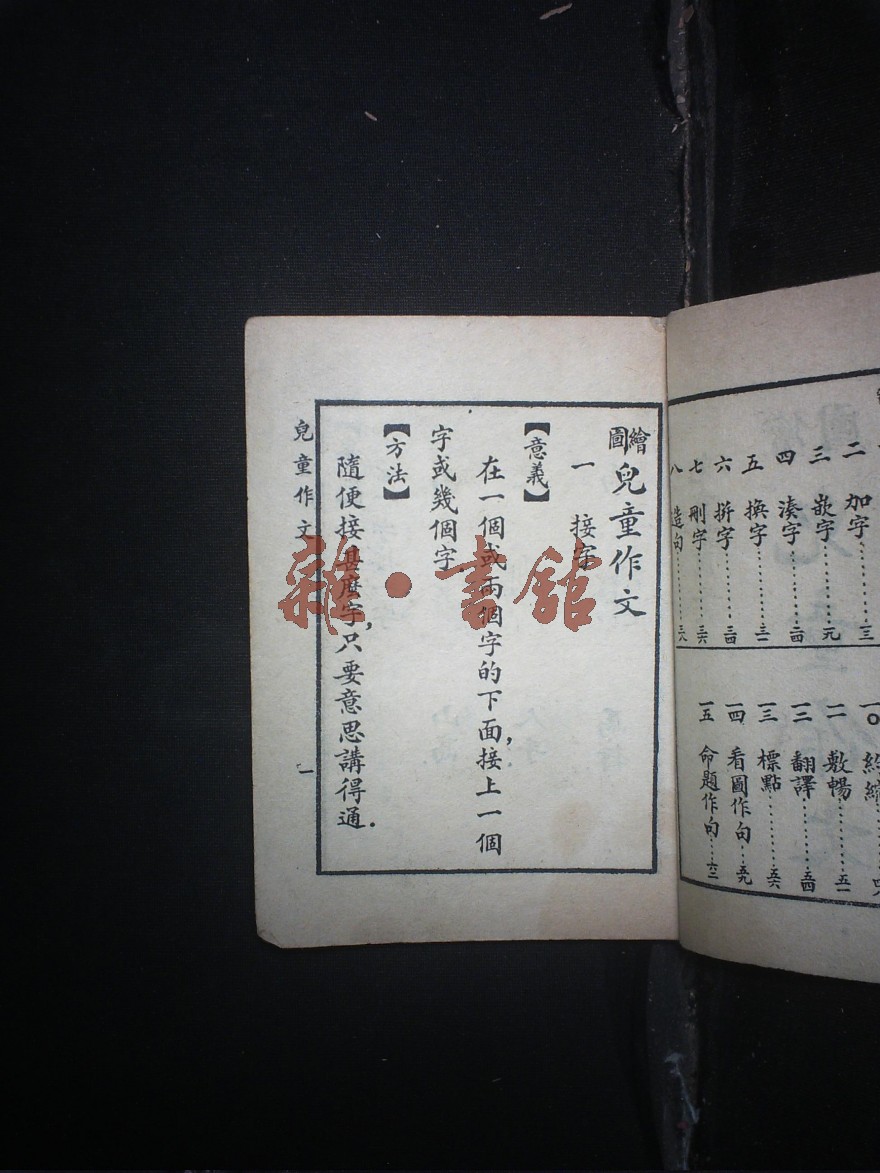 二 加字……三
三 嵌字……元
四 湊字……二四
五 換字……三二
六 拼字……三四
七 刪字……三六
八 造句……三八
一〇
一一 敷暢……五一
一二 翻譯……五四
一三 標點……五六
一四 看圖作句……五九
一五 命題作句……六二
繪圖兒童作文
一 接字
【意義】
在一個或兩個字的下面,接上一個
字或幾個字.
【方法】
隨便接甚麼字,只要意思講得通.
兒童作文
一
雜·書館